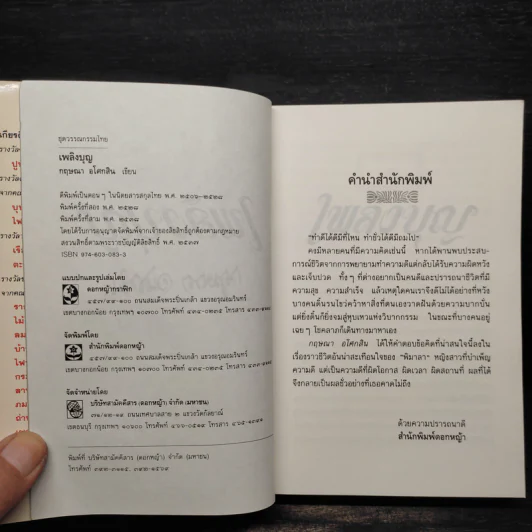 ชุดวรรณกรรมไทย
เพลิงบุญ
กฤษณา อโศกสิน เขียน
พิมพ์ครั้งที่สอง พ.ศ. ๒๕๒๘
พิมพ์ครั้งที่สาม พ.ศ. ๒๕๓๘
โดยได้รับการอนุญาตจัดพิมพ์จากเจ้าของลิขสิทธิ์ถูกต้องตามกฎหมาย
สงวนลิขสิทธิ์ตามพระราชบัญญัติลิขสิทธิ์ พ.ศ. ๒๕๓๗
ISBN 974-603-083-3
แบบปกและรูปเล่มโดย
ดอกหญ้ากราฟิก
๔๕๗/๔๔-๑๐๐ ถนนสมเด็จพระปิ่นเกล้า แขวงอรุณอมรินทร์
เขตบางกอกน้อย กรุงเทพฯ ๑๐๗๐๐ โทรศัพท์
จัดพิมพ์โดย
สำนักพิมพ์ดอกหญ้า
๔๕๗/๔๔-๑๐๐ ถนนสมเด็จพระปิ่นเกล้า แขวงอรุณอมรินทร์
เขตบางกอกน้อย กรุงเทพฯ ๑๐๗๐๐ โทรศัพท์
จัดจำหน่ายโดย
บริษัทสามัคคีสาร (ดอกหญ้า) จำกัด (มหาชน)
ถนนเทศบาลสาย ๒ แขวงวัดกัลยาณ์
เขตธนบุรี กรุงเทพฯ ๑๐๖๐๐ โทรศัพท์
พิมพ์ที่ บริษัทสามัคคีสาร (ดอกหญ้า) จำกัด (มหาชน)
โทรศัพท์
คำนำสำนักพิมพ์
"ทำดีได้ดีมีที่ไหน ทำชั่วได้ดีมีถมไป"
คงมีหลายคนที่มีความคิดเช่นนี้ หากได้พานพบประสบ-
การณ์ชีวิตจากการพยายามทำความดีแต่กลับได้รับความผิดหวัง
และเจ็บปวด ทั้งๆ ที่ต่างอยากเป็นคนดีและปรารถนาชีวิตที่มี
ความสุข ความสำเร็จ แล้วเหตุใดคนเราจึงดีไม่ได้อย่างที่หวัง
บางคนดิ้นรนไขว่คว้าหาสิ่งที่ตนเองวาดฝันด้วยความบากบั่น
แต่ยิ่งดิ้นก็ยิ่งจมสู่หุบเหวแห่งวิบากกรรม ในขณะที่บางคนอยู่
เฉยๆ โชคลาภก็เดินทางมาหาเอง
กฤษณา อโศกสิน ได้ให้คำตอบข้อคิดที่น่าสนใจนี้ลงใน
เรื่องราวชีวิตอันน่าสะเทือนใจของ "พิมาลา" หญิงสาวที่บำเพ็ญ
ความดี แต่เป็นความดีที่ผิดโอกาส ผิดเวลา ผิดสถานที่ ผลที่ได้
จึงกลายเป็นผลชั่วอย่างที่เธอคาดไม่ถึง
ด้วยความปรารถนาดี
สำนักพิมพ์ดอกหญ้า